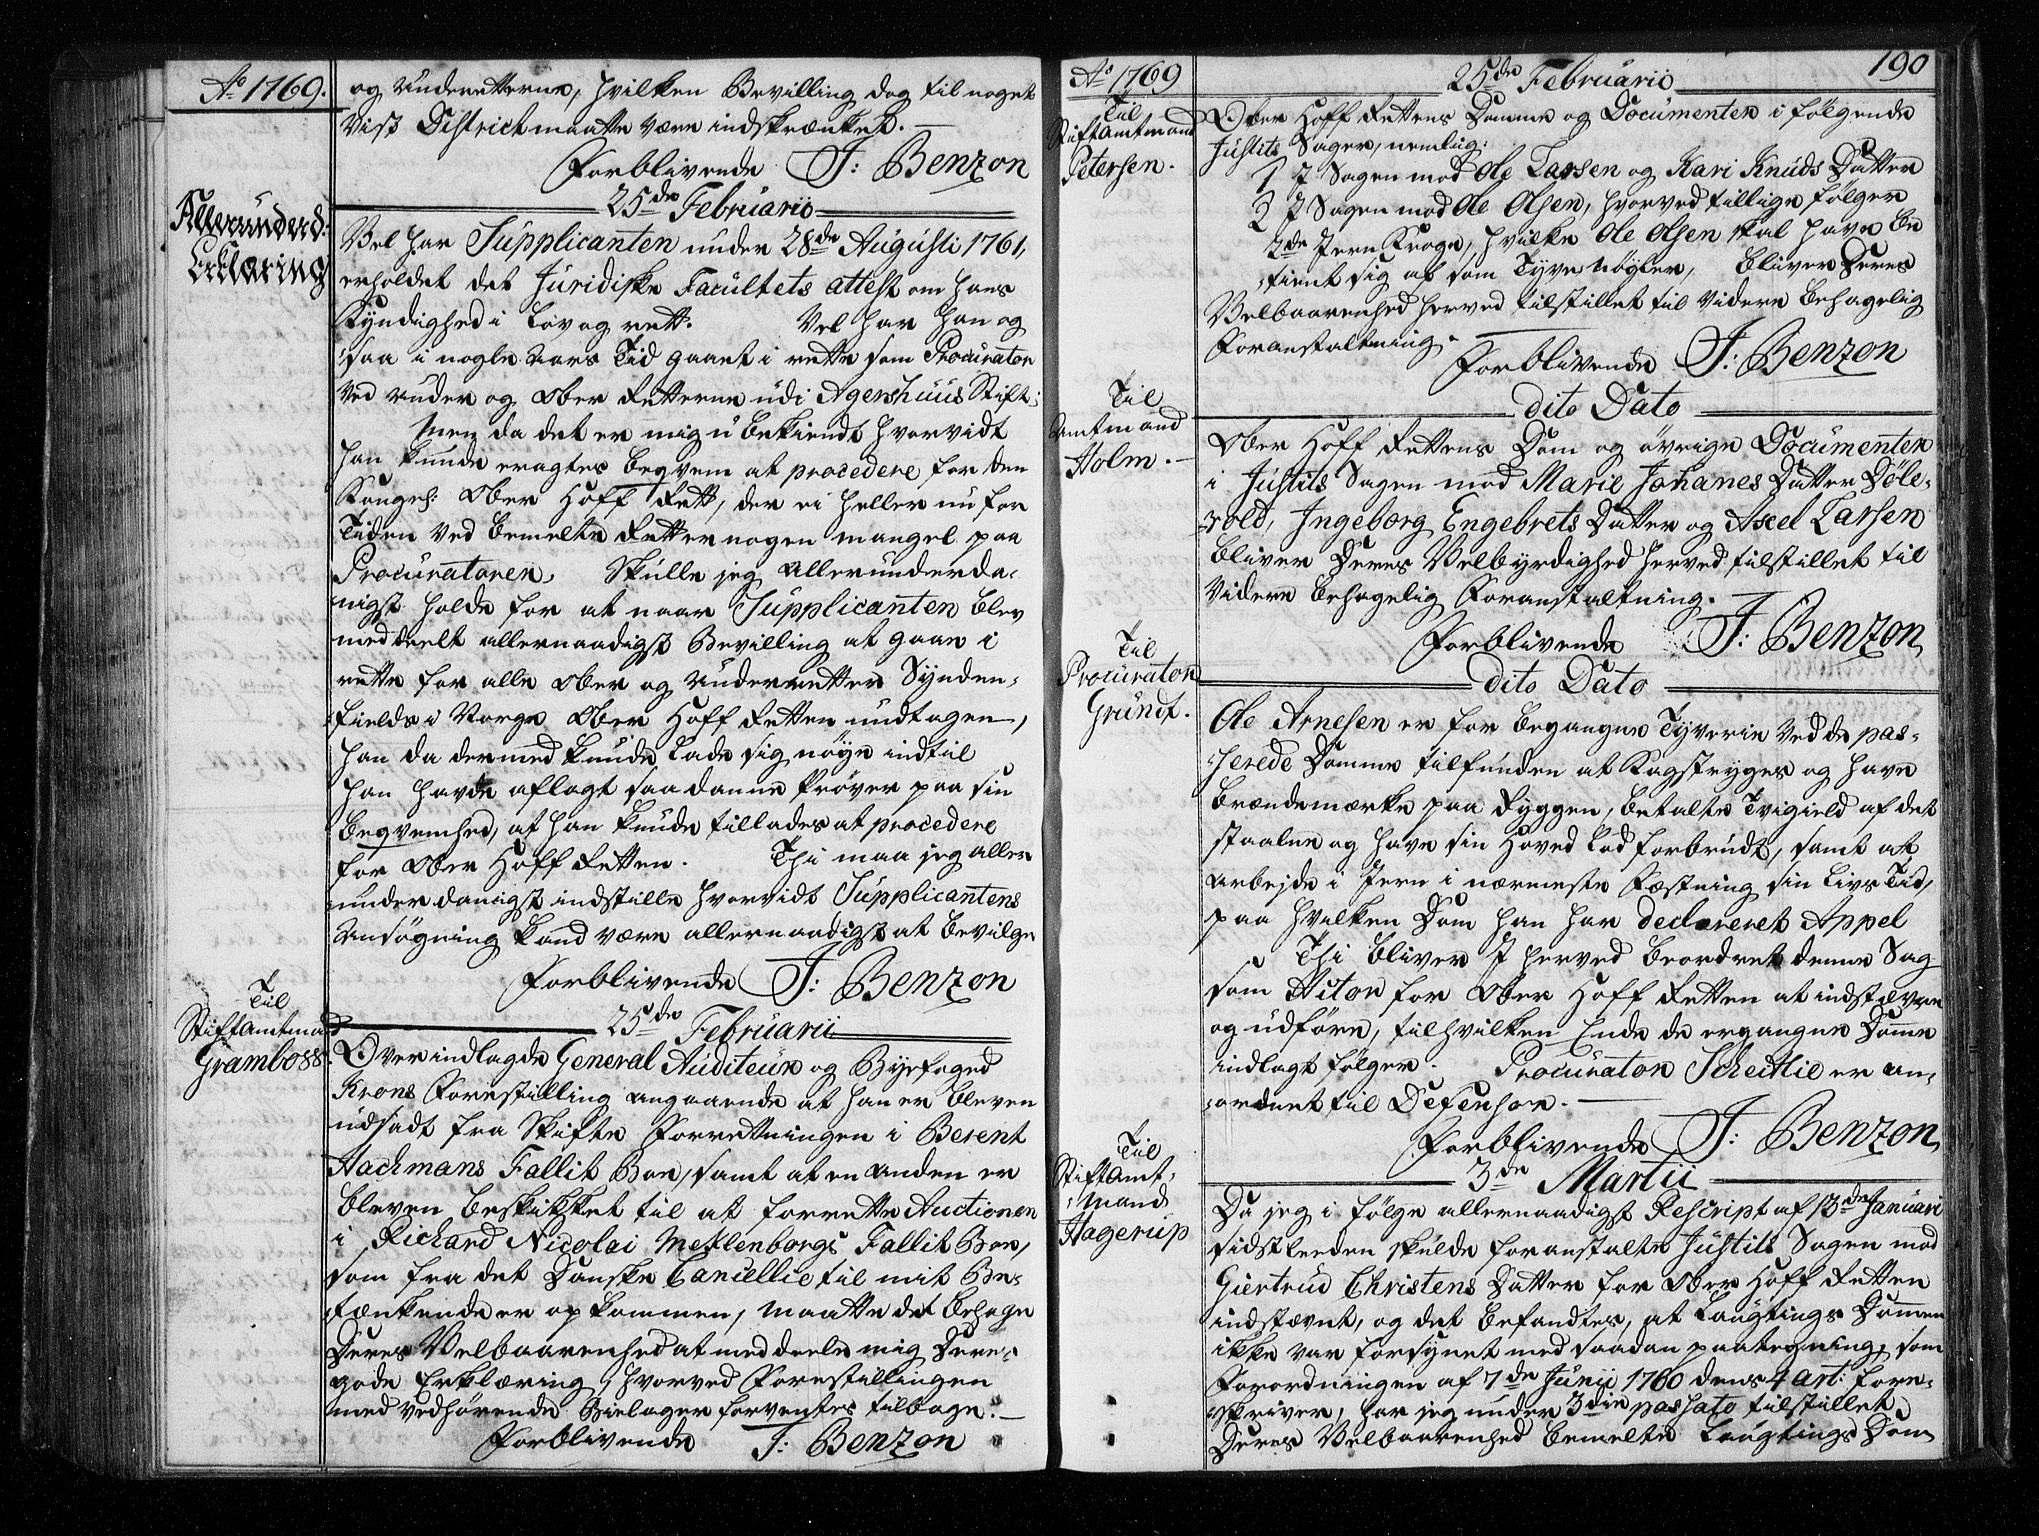 Ao 1769.
og Underretterne, hvilken Bevilling dog til noget
vist District maatte være indskrænket.
Forblivende J: Benzon
25de Februarii
Allerunderd:
Erklæring
Vel har Supplicanten under 28de Augusti 1761,
erholdet det Juridiske Facultets attest om hans
Kyndighed i Lov og rett. Vel har han og
saa i nogle aars Tid gaaet i rette som Procurator
ved under og Ober Retterne udi Agershuus Stift;
Men da det er mig ubekiendt hvorvidt
han kunde eragtes beqvem at procedere for den
Kongel: Ober Hoff Rett, der ei heller nu for
Tiden ved bemelte Rett er nogen mangel paa
Procuratorer. Skulle jeg allerunderda-
nigst holde for at naar Supplicanten blev
meddeelt allernaadigst Bevilling at gaae i
rette for alle Ober og Underretter Synden-
fields i Norge Ober Hoff Retten undtagen,
han da dermed kunde lade sig nøye indtil
han havde aflagt saadanne Prøver paa sin
beqvemhed, at han kunde tillades at procedere
for Ober Hoff Retten. Thi maa jeg aller
underdanigst indstille hvorvidt Supplicantens
Ansøgning kand være allernaadigst at bevilge
Forblivende J: Benzon
25de Februarii
Til
Stiftamtmand
Gramboss.
Over indlagde General Auditeur og Byefoged
Krons Forestilling angaaende at han er bleven
udsadt fra Skifte Forretningen i Berent
Hachmans Fallit Boe, samt at en anden er
bleven beskikket til at forrette Auctionen
i Richard Nicolai Meklenborgs Fallit Boe,
som fra det Danske Cancellie til mit Be-
tænkende er opkommen, maatte det behage
Deres Velbaarenhed at meddeele mig Deres
gode Erklæring, hvorved Forestillingen
med vedhørende Bielager forventes tilbage.
Forblivende J: Benzon
Ao 1769
190
25de Februarii
Til
Stiftamtmand
Petersen.
Ober Hoff Rettens Domme og Documenter i følgende
Justits Sager, nemlig:
1 J Sagen mod Ole Larsen og Kari Knuds Datter
2 J Sagen mod Ole Olsen, hvorved tillige følger
2de Jern Kroge, hvilke Ole Olsen skal have be
tient sig af som Tyve Nøgler, bliver Deres
Velbaarenhed herved tilstillet til videre behagelig
Foranstaltning.
Forblivende J: Benzon
dito Dato
Til
Amtmand
Holm.
Ober Hoff Rettens Dom og øvrige Documenter
i Justits Sagen mod Marie Johanes Datter Døle-
rold, Ingeborg Engebrets Datter og Axel Larsen
bliver Deres Velbyrdighed herved tilstillet til
videre behagelig Foranstaltning.
Forblivende J: Benzon
dito Dato
Til
Procurator
Grundt.
Ole Arnesen er for begangne Tyverie ved de pas-
serede Domme tilfunden at Kagstryges og have
Brændemærke paa Ryggen, betalte Tvigield af det
staalne og have sin Hoved Lod forbrudt, samt at
arbejde i Jern i nærmeste Fæstning sin Livs Tid,
paa hvilken Dom han har declareret Appel
Thi bliver I herved beordret denne Sag
som Actor for Ober Hoff Retten at indstævne
og udføre, til hvilken Ende de ergangne Domme
indlagt følger. Procurator Scheitlie er an-
ordnet til Defensor.
Forblivende J: Benzon
3de Martii
Til
Stiftamt-
mand
Hagerup
Da jeg i følge allernaadigst Rescript af 13de Januari
sidstleeden skulde foranstalte Justits Sagen mod
Giertrud Christens Datter for Ober Hoff Retten
indstævnt, og det befandtes, at Laugtings Dommen
ikke var forsynet med saadan paategning, som
Forordningen af 7de Junii 1760 dens 4 art: fore-
skriver, har jeg under 3die passato tilstillet
Deres Velbaarenhed bemelte Laugtings Dom